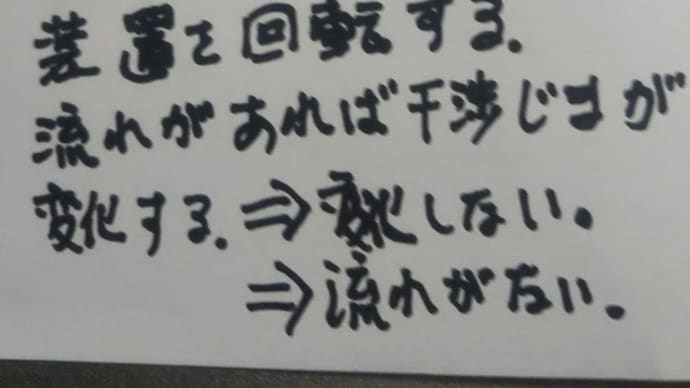 装置を回転する.
流れがあれば干渉じまが
変化する.⇒変化しない。
⇒流れがない。